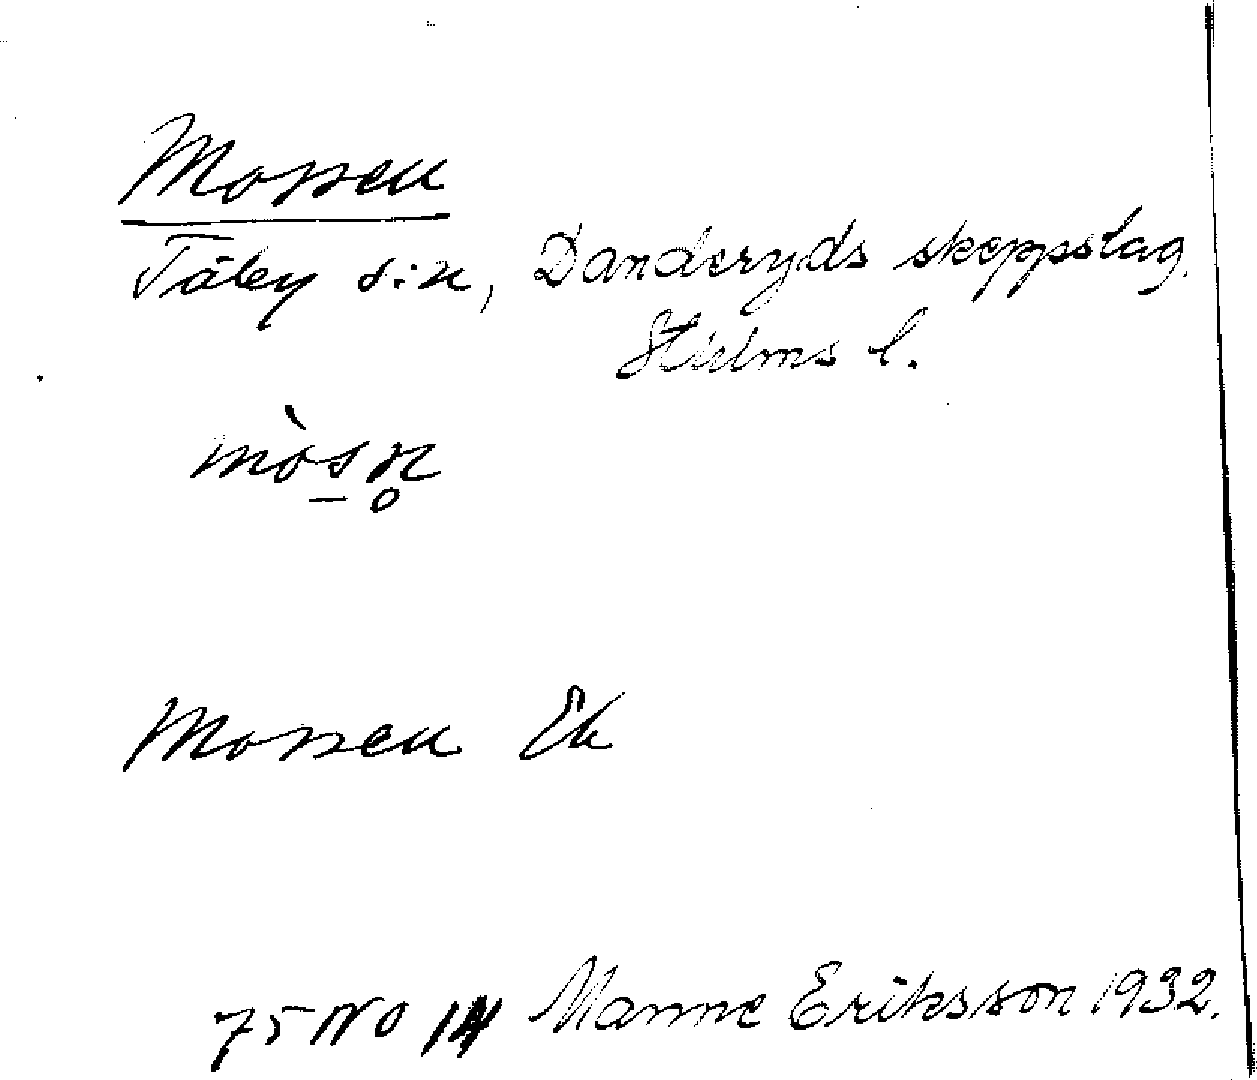 Mossen
Täby s:n, Danderyds skeppslag.
Sthlms l.
mòs̠n̥
Mossen Ek
75 NO Manne Eriksson 1932.